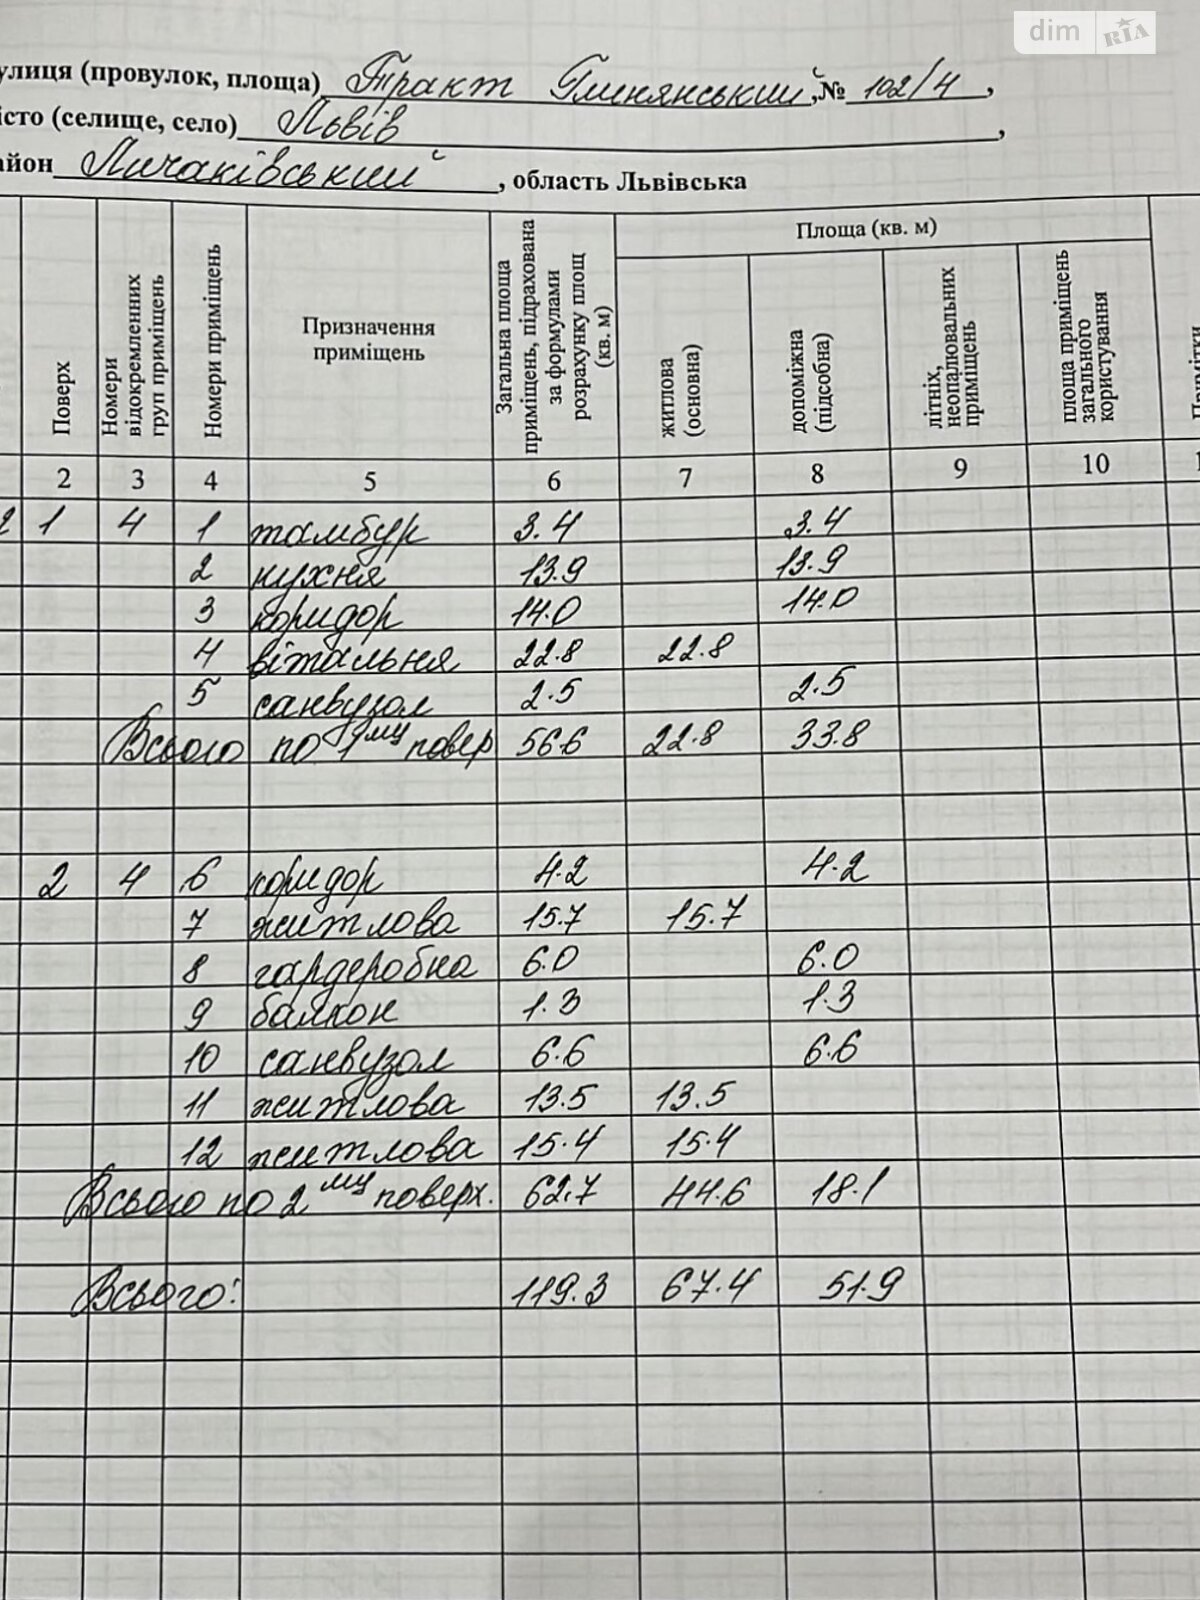 dim RIA
улиця (провулок, площа) Тракт Глинянський, № 102/4,
істо (селище, село) Львів,
айон Личаківський, область Львівська
Поверх
Номери відокремленних груп приміщень
Номери приміщень
Призначення приміщень
Загальна площа приміщень, підрахована за формулами розрахунку площ (кв. м)
Площа (кв. м)
житлова (основна)
допоміжна (підсобна)
літніх, неопалювальних приміщень
площа приміщень загального користування
Примітки
2 3 4 5 6 7 8 9 10 1
2 1 4 1 тамбур 3.4 3.4
2 кухня 13.9 13.9
3 коридор 14.0 14.0
4 вітальня 22.8 22.8
5 санвузол 2.5 2.5
Всього по 1му повер 56.6 22.8 33.8
2 4 6 коридор 4.2 4.2
7 житлова 15.7 15.7
8 гардеробна 6.0 6.0
9 балкон 1.3 1.3
10 санвузол 6.6 6.6
11 житлова 13.5 13.5
12 житлова 15.4 15.4
Всього по 2му поверх. 62.7 44.6 18.1
Всього: 119.3 67.4 51.9